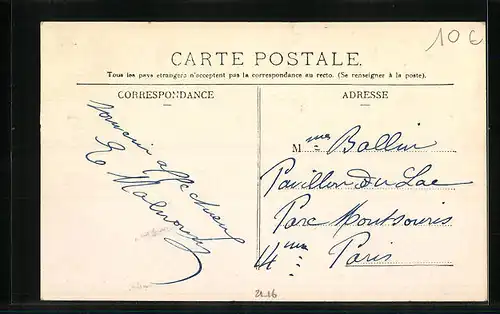 10 €
CARTE POSTALE.
Tous les pays étrangers n'acceptent pas la correspondance au recto. (Se renseigner à la poste).
CORRESPONDANCE
Souvenir affectueux
ADRESSE
Mmes Ballin
Pavillon du Lac
Parc Montsouris
14me
Paris